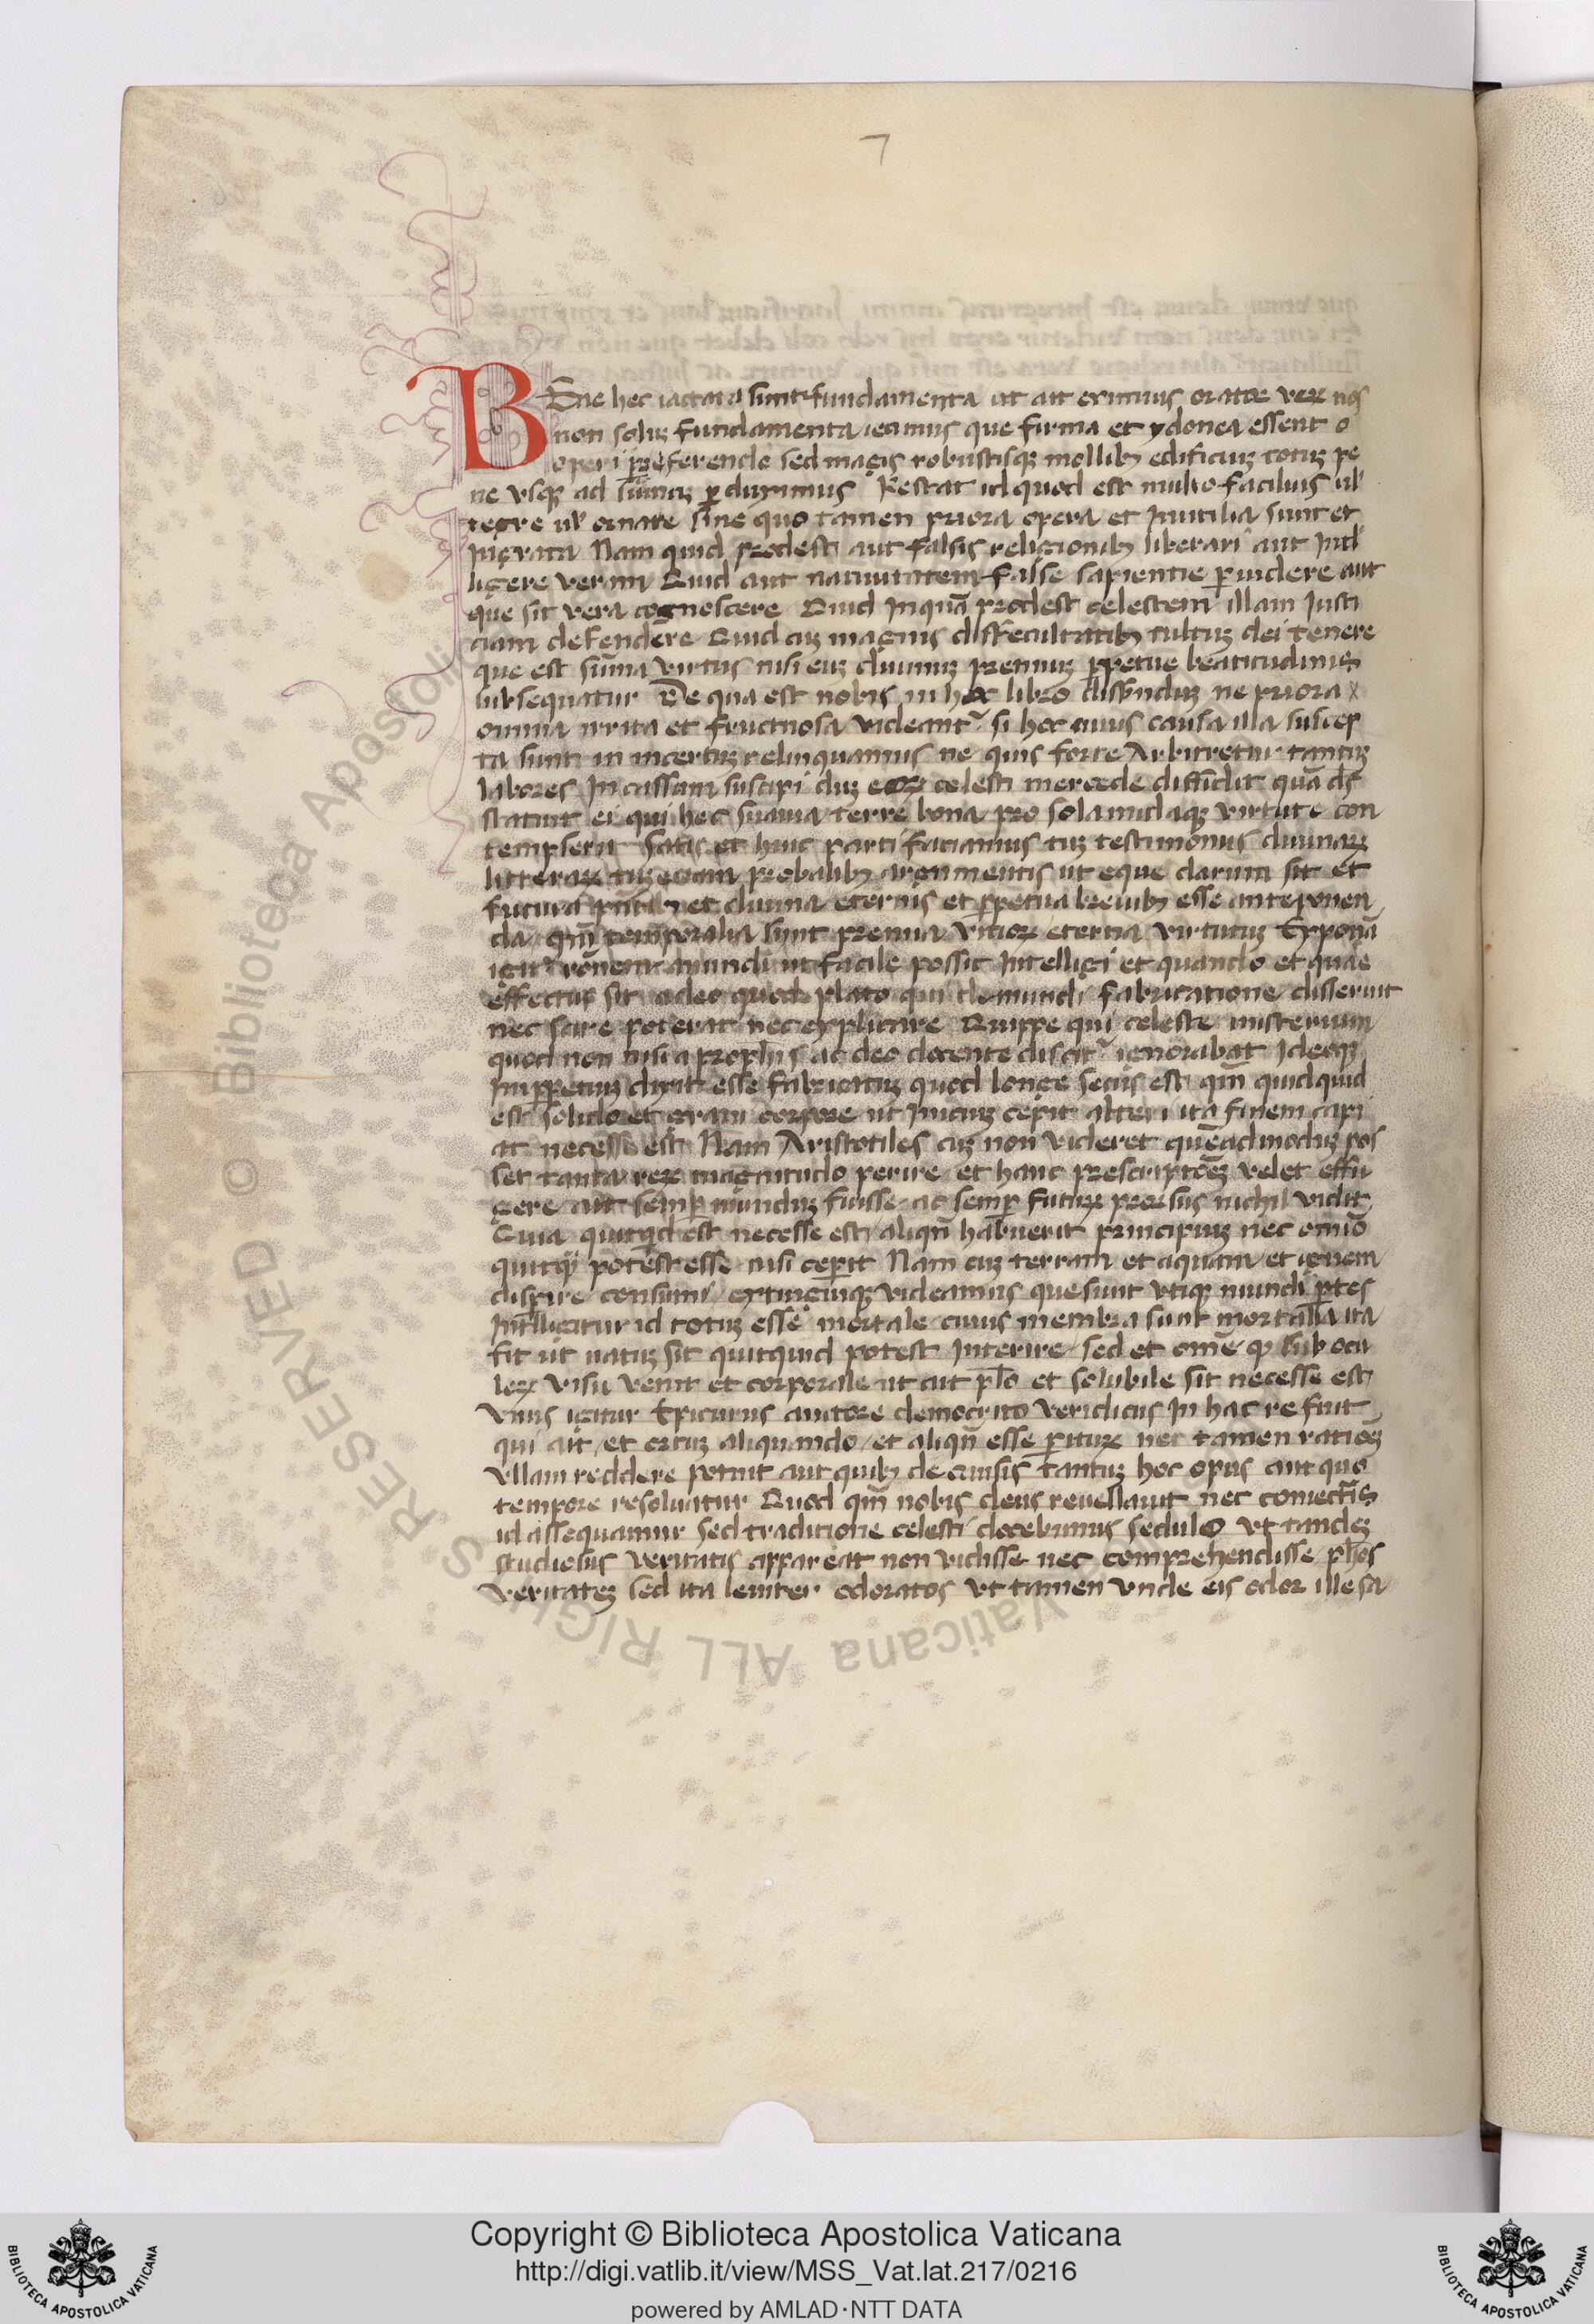 7
BEne hec iactata sunt fundamenta ut ait eximius orator veꝝ nos
non soluꝫ fundamenta iecimus que firma et ydonea essent o
operi p̄ferendo sed magis robustisqꝫ mollibꝫ edificiuꝫ totuꝫ pe
ne vsqꝫ ad sūmuꝫ ꝑduximus Restat id quod est multo facilius ul̓
tegre ul̓ ornare sine quo tamen priora opera et Inutilia sunt et
Ingrata Nam quid prodest aut falsis religionibꝫ liberari aut Intl̓
ligere veram Quid aut nativitatem false sapientie ꝑvidere aut
que sit vera cognoscere Quid Inquā prodest celestem illam Justi
ciam defendere Quid cuꝫ magnis diffecultatibꝫ cultuꝫ dei tenere
que est sūma virtus nisi euꝫ divinuꝫ premiuꝫ ꝑpetue beatitudinis
subsequatur De qua est nobis in hoc libro dissenduꝫ ne priora
omnia irrita et fructuosa videant᷑ si hoc cuius causa illa suscep
ta sunt in incertuꝫ relinquamus ne quis forte Arbitretur tantuꝫ
labores In cassam suscipi duꝫ eoꝝ celesti mercede diffidit quā ds̄
statuit ei qui hec suavia terre bona pro sola nudaqꝫ virtute con
tempserit Satis et huic parti faciamus tuꝫ testimoniis divinaꝝ
litteraꝝ tuꝫ etiam probabilibꝫ argumentis ut eque clarum sit et
futura pn̄tibꝫ et divina eternis et ꝑpetua brevibꝫ esse anteponen
da qm̄ temporalia sunt premia vicioꝝ eterna virtutuꝫ Exponā
igit᷑ rōnem mundi ut facile possit Intelligi et quando et quae
effectus sit a deo quod plato qui de mundi fabricatione disseruit
nec scire poterat nec explicare Quippe qui celeste misterium
quod non nisi a prophīs ac deo docente discit᷑ ignorabat Ideoqꝫ
Inꝑpetuuꝫ dixit esse fabricatuꝫ quod longe secus est qm̄ quidquid
est solido et gravi corpore ut Iniciuꝫ cepit alteri ita finem capi
at necesse est Nam Aristotiles cuꝫ non videret quēadmoduꝫ pos
set tanta reꝝ magnitudo perire et hanc prescriptōeꝫ velet effu
gere aut semꝑ munduꝫ fuisse ac semꝑ futuꝝ prorsus nichil vidit
Quia quitqd est necesse est aliqn̄ habuerit principiuꝫ nec omīo
quitq̄ potest esse nisi ceꝑit Nam cuꝫ terram et aquam et ignem
disꝑire consumi extinguiqꝫ videamus que sunt vtiqꝫ mundi ꝑtes
Intl̄ligitur id totuꝫ esse mortale cuius membra sunt mortalia ita
fit ut natuꝫ sit quitquid potest Interire sed et om̄e qꝫ sub ocu
loꝝ visu venit et corporale ut ait pl̄o et solubile sit necesse est
Vnus igitur Epicurus auctore democrito veridicus In hac re fuit
qui ait et ortuꝫ aliquando et aliqn̄ esse ꝑituꝝ nec tamen ratiōeꝫ
vllam reddere potuit aut quibꝫ de causis tantuꝫ hoc opus aut quo
tempore resolvatur Quod qm̄ nobis deus revellavit nec coniectīs
id assequamur sed traditione celesti docebimus sedulo vt tandeꝫ
studiosus veritatis appareat non vidisse nec comprehendisse ph̄os
veritateꝫ sed ita leviter odoratos vt tamen vnde eis odor ille sa
© Biblioteca Apostolica Vaticana ALL RIGHTS RESERVED
Copyright © Biblioteca Apostolica Vaticana
http://digi.vatlib.it/view/MSS_Vat.lat.217/0216
powered by AMLAD·NTT DATA
BIBLIOTECA APOSTOLICA VATICANA
BIBLIOTECA APOSTOLICA VATICANA